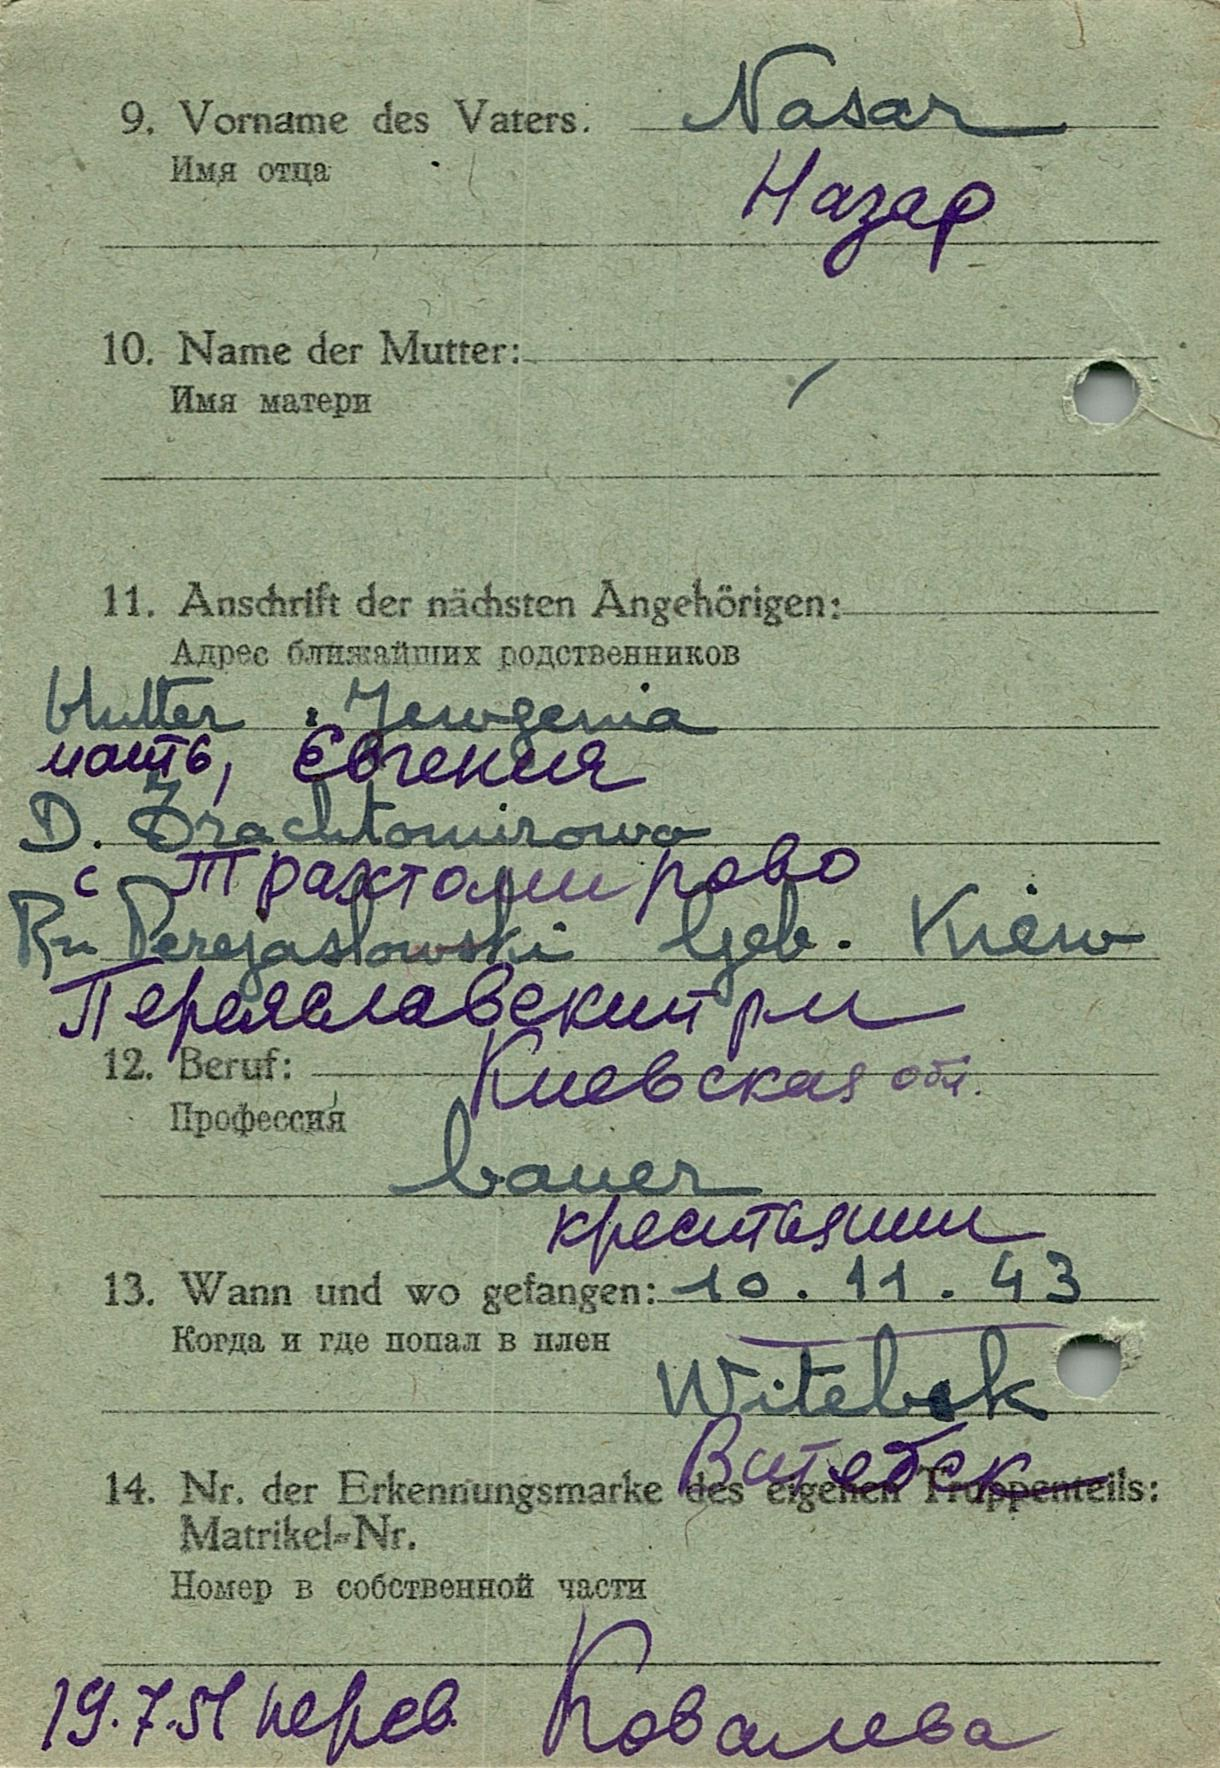 9. Vorname des Vaters. Nasar
Имя отца
Назар
10. Name der Mutter:
Имя матери
11. Anschrift der nächsten Angehörigen:
Адрес ближайших родственников
Mutter Jewgenia
мать, Евгения
D. Trachtomirowo
с Трахтомирово
Rn Perejaslowski Geb. Kiew
Переяславский р-н
12. Beruf:
Киевская обл.
Профессия
bauer
крестьянин
13. Wann und wo gefangen: 10. 11. 43
Когда и где попал в плен
Witebsk
Витебск
14. Nr. der Erkennungsmarke des eigenen Truppenteils:
Matrikel-Nr.
Номер в собственной части
19.7.51 перев. Ковалева